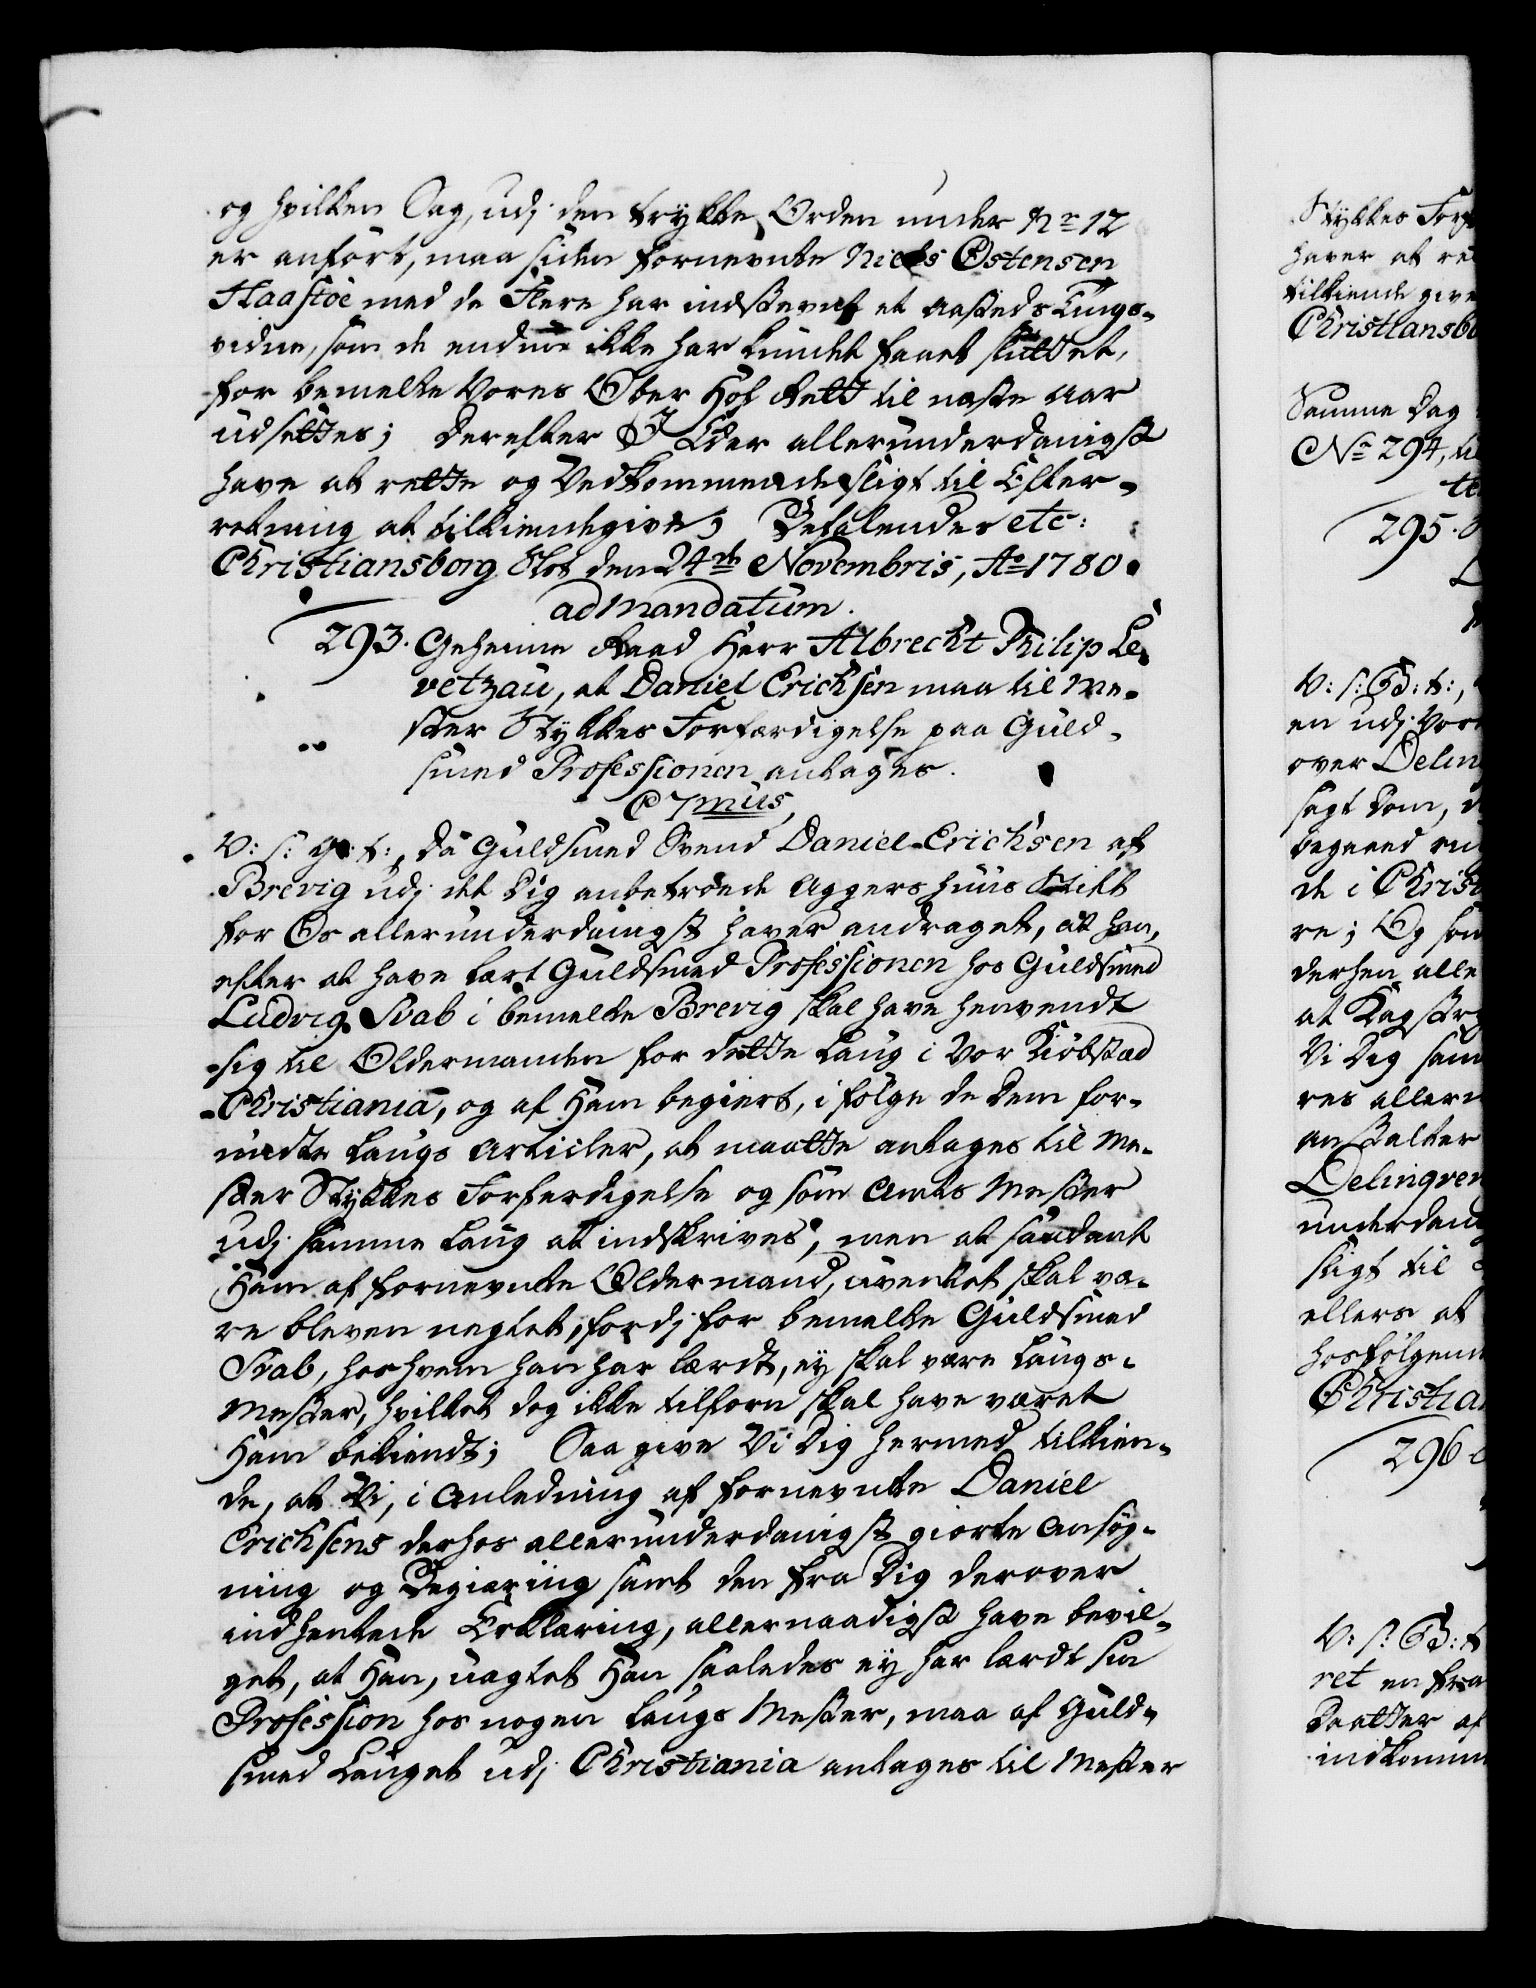 og hvilken Sag, udj den trykte Orden under No 12
er anført, maa siden fornevnte Niels Ostensen
Haastöe med de Flere har indstevnt et Aasteds Tings-
vidne, som de endnu ikke har kundet faaet sluttet,
for bemelte Vores Ober Hof Rett til næste Aar
udsættes; Derefter I Eder allerunderdanigst
have at rette og Vedkommende sligt til Efter-
retning at tilkiendegive; Befalendes etc:
Christiansborg Slot den 24de Novembris, Ao 1780.
ad mandatum.
293. Geheime Raad Herr Albrecht Philip Le-
vetzau, at Daniel Erichsen maa til Me-
ster Stykkes Forfærdigelse paa Guld-
smed Professionen antages.
C7mus,
V: s: G: t:, Da Guldsmed Svend Daniel Erichsen af
Brevig udj det Dig anbetroede Aggershuus Stift
for Os allerunderdanigst haver andraget, at han,
efter at have lært Guldsmed Professionen hos Guldsmed
Ludvig Svab i bemelte Brevig skal have henvendt
sig til Oldermanden for dette Laug i Vor Kiöbstæd
Christiania, og af Ham begiert, i fölge de Dem for-
undte Laugs Articler, at maatte antages til Me-
ster Stykkes Forferdigelse og som Amts Mester
udj samme Laug at indskrives, men at saadant
Ham af fornevnte Oldermand, uventet skal væ-
re bleven negtet, fordj for bemelte Guldsmed
Svab, hos hvem han har lærdt, ey skal være Laugs-
Mester, hvilket dog ikke tilforn skal have været
Ham bekiendt; Saa give Vi Dig hermed tilkien-
de, at Vi, i Anledning af fornevnte Daniel
Erichsens derhos allerunderdanigst giorte Ansög-
ning og Begiæring samt den fra Dig derover
indhentede Erklæring, allernaadigst have bevil-
get, at Han, uagtet Han saaledes ey har lærdt sin
Profession hos nogen Laugs Mester, maa af Guld-
smed Lauget udj Christiania antages til Mester
Stykkes Forf
haver at re
tilkiende give
Christiansbo
Samme Dag
No 294, til
te
295.
V: s: G: t:,
en udj Vor
over Delin
sagt Dom, d
begaaed
de i Christ
re; Og som
derhen alle
at Kagstr
Vi Dig sam
res allern
anstalter
Delinqven
underdan
sligt til
ellers at
hosfölgend
Christian
296.
V: s: G: t
ret en fra
Daatter af
indkomm